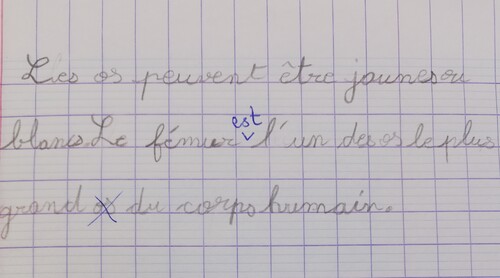 Les os peuvent être jaunes ou
blancs. Le fémur est l'un des os le plus
grand os du corps humain.